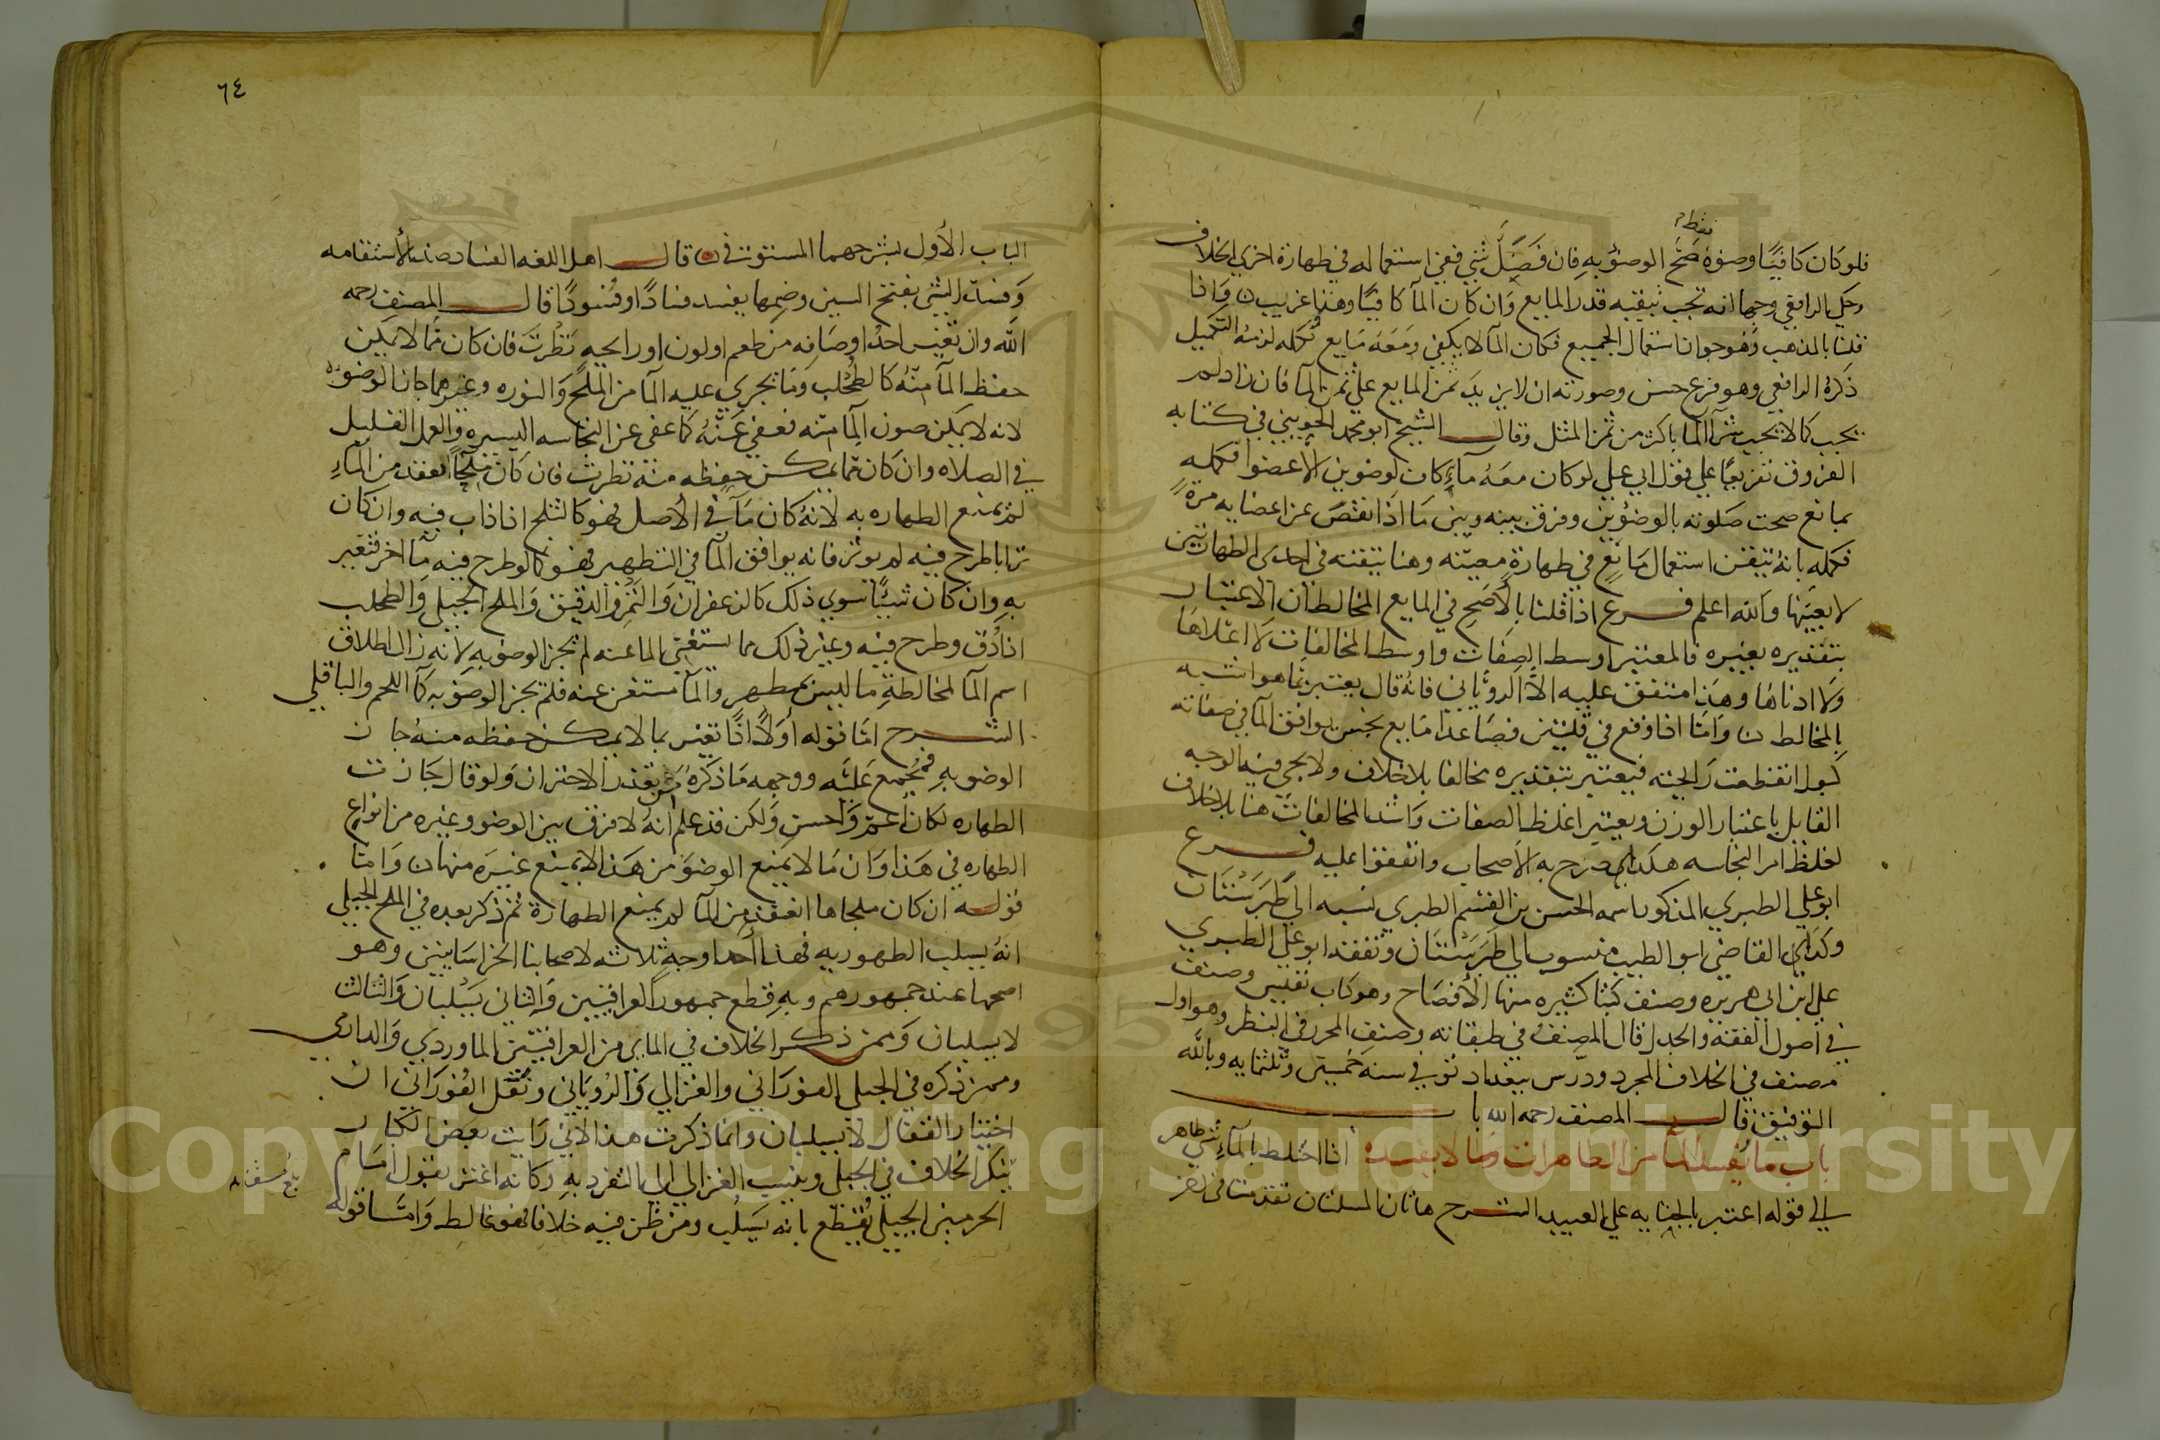 فقط
فلو كان كافيًا وضوءه صَحّ الوضوء به فان فَضَلَ شي ففي استعماله في طهارة اخري الخلاف
وحكي الرافعي وجها انه تجب تبقيه قدر المايع وان كان المآ كافيًا وهذا غريب ن واذا
قلنا بالمذهب وهو جواز استعمال الجميع فكان المآ لا يكفي ومَعَه مَايع تُكمله لزمه التكميل
ذكره الرافعي وهو فرع حسن وصورته ان لا يزيد ثمن المايع علي ثمن المآ فان زاد لم
يجب كما لا يجب شرآ المآ باكثر من ثمن المثل وقال الشيخ ابو محمد الجويني في كتابه
الفروق تفريعًا علي قول ابي علي لو كان معَه مآء كاف لوضوين الا عضوا فكمله
بمايع صحت صَلوته بالوضوين وفرق بينه وبين مَا اذا نقصَ عن اعضايه مرةً
فكمله بانه تيقن استعمال مَايع في طهارةٍ معينه وهنا تيقنه في احدى الطهارتين
لا بعينها والله اعلم فرع اذا قلنا بالأصَح في المايع المخالط ان الاعتبار
بتقديره بغيره فالمعتبر اوسط الصفات واوسط المخالفات لا اعلاها
ولا ادناها وهذا متفق عليه الا الروياني فانه قال يعتبر بما هو اشبه
بالمخالط ن وامّا اذا وقع في قلتين فصَاعدا مَايع نجس يوافق المآ في صفاته
كبول انقطعت رَايحته فيعتبر بتقديره مخالفا بلا خلاف ولا يجي فيه الوجه
القايل باعتبار الوزن ويعتبر اغلظ الصفات واشد المخالفات هنا بلا خلاف
لغلظ امر النجاسه هكذا صرح به الأصحاب واتفقوا عليه فرع
ابو علي الطبري المذكور اسمه الحسن بن القسم الطبري نسبه الي طَبَرَسْتَان
وكذلك القاضي ابو الطيب منسوب الي طبرستان وتفقه ابو علي الطبري
علي ابن ابي هريره وصنف كتبا كثيره منها الأفصَاح وهو كتاب نفيس وصنف
في اصول الفقه والجدل قال المصنف في طبقاته وصنف المحرر في النظر وهو اول
مصنف في الخلاف المجرد ودرّس ببغداد توفي سنه خمسين وثلثمايه وبالله
التوفيق قال المصنف رحمه الله با
باب ما يفسد المآ من الطاهرات وما لا يفسده اذا اختلط بالمآء شي طاهر
الي قوله اعتبر بالجنايه علي العبيد الشرح هاتان المسلتان تقدمتا في اخر
٦٤
الباب الأول بشرحهما المستوفى ن قال اهل اللغه الفساد ضد الأستقامه
وفسد الشي بفتح السين وضمها يفسد فسادًا وفُسودًا قال المصنف رحمه
الله وان تغير احد اوصافه من طعم او لون او رايحه نَظَرتَ فان كان مما لا يمكن
حفظ المآ منه كالطحلب وما يجري عليه المآ من الملح والنوره وغيرهما جاز الوضوء به
لانه لا يمكن صون المآ منه فعفي عنه كما عفي عن النجاسه اليسيره والعمل القليل
في الصلاه وان كان مما يمكن حفظه منه نظرت فان كان ملحًا انعقد من المآءِ
لم يمنع الطهاره به لانه كان مآ في الأصل فهو كالثلج اذا ذاب فيه وان كان
ترابا طرح فيه لم يوثر فانه يوافق المآ في التطهير فهو كما لو طرح فيه مآ اخر فتغير
به وان كان شيًا سوي ذلك كالزعفران والتمر والدقيق والملح الجبلي والطحلب
اذا دُق وطرح فيه وغير ذلك مما يستغني الما عنه لم يجز الوضو به لانه زال اطلاق
اسم المآ لمخالطةِ ما ليس بمطهر والمآ مستغن عنه فلم يجز الوضو به كمآ اللحم والباقلي
الشرح امّا قوله أولًا اذا تغير بما لا يمكن حفظه منه جاز
الوضو به فمجمع عليه ووجهه مَا ذكره من تعذر الاحتراز ولو قال جازت
الطهاره لكان اعمّ واحسن ولكن قد علم انه لا فرق بين الوضو وغيره من انواع
الطهاره في هذا وان مَا لا يمنع الوضوَ من هذا لا يمنع غيرَه منها ن وامّا
قوله ان كان ملحا ما انعقد من المآ لم يمنع الطهارة ثم ذكر بعده في الملح الجبلي
انه يسلب الطهوريه فهذا احد اوجهٍ ثلاثه لاصحابنا الخراسَانيين وهو
اصحها عند جمهورهم وبه قطع جمهور العراقيين والثاني يَسْلبان والثالث
لا يسلبان وممن ذكر الخلاف في المايي من العراقيين الماوردي والدارمي
وممن ذكره في الجبلي الفوراني والغزالي والروياني ونقل الفوراني ان
اختيار القفال لا يسلبان وانما ذكرت هذا لاني رَايت بعض الكبار
ينكر الخلاف في الجبلي وينسب الغزالي الي التفرد به وكانه اغتر بقول امَام
الحرمين الجبلي يُقطع بانه يسلُب ومن ظن فيه خلافا فهو غالط وامَّا قوله